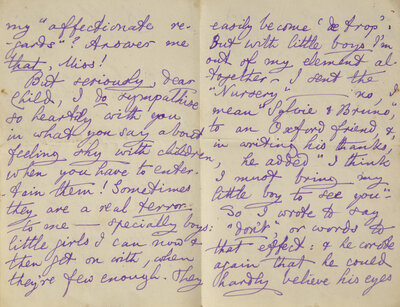 my "affectionate re-
gards"? Answer me
that, Miss!
But seriously, dear
Child, I do sympathise
so heartily with you
in what you say about
feeling shy with children
when you have to enter-
tain them! Sometimes
they are a real terror
to me — specially boys:
little girls I can now &
then get on with, when
they're few enough. They
easily become 'de trop'.
But with little boys I'm
out of my element al-
together. I sent the
"Nursery" — no, I
mean "Sylvie & Bruno"
to an Oxford friend, &,
in writing his thanks,
he added "I think
I must bring my
little boy to see you"
So I wrote to say
"don't," or words to
that effect: & he wrote
again that he could
hardly believe his eyes